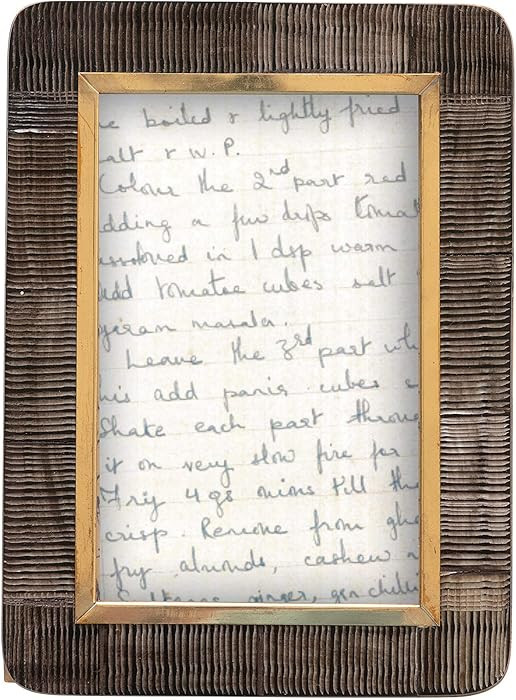 e boiled & lightly fried
alt & W.P.
Colour the 2nd part red
dding a few drops tomat
issolved in 1 dsp warm
add tomatoe cubes salt
garam masala.
Leave the 3rd part whi
his add panir cubes
Shake each part throug
it on very slow fire for
Fry 4 gs onions till the
crisp. Remove from ghe
fry almonds, cashew n
ginger, grn chilli